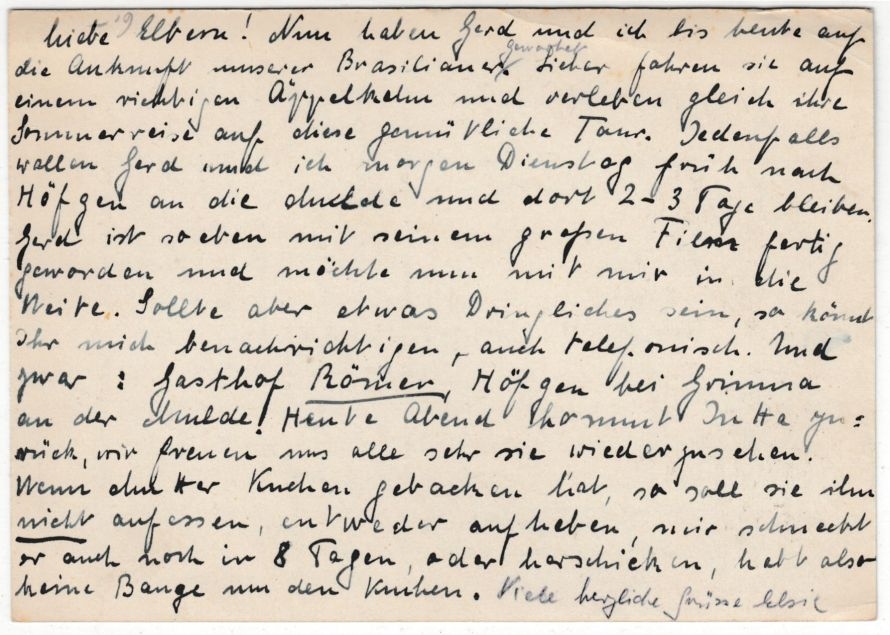 Liebe Eltern! Nun haben Gerd und ich bis heute auf
die Ankunft unserer Brasilianer gewartet. Sicher fahren sie auf
einem richtigen Äppelkahn und verleben gleich ihre
Sommerreise auf diese gemütliche Tour. Jedenfalls
wollen Gerd und ich morgen Dienstag früh nach
Höfgen an die Mulde und dort 2-3 Tage bleiben.
Gerd ist soeben mit seinem großen Film fertig
geworden und möchte nun mit mir in die
Weite. Sollte aber etwas Dringliches sein, so könnt
Ihr mich benachrichtigen, auch telefonisch. Und
zwar: Gasthof Römer, Höfgen bei Grimma
an der Mulde. Heute Abend kommt Jutta zu=
rück, wir freuen uns alle sehr sie wiederzusehen.
Wenn Mutter Kuchen gebacken hat, so soll sie ihn
nicht aufessen, entweder aufheben, mir schmeckt
er auch noch in 8 Tagen, oder herschicken, habt also
keine Bange um den Kuchen. Viele herzliche Grüsse Elsie